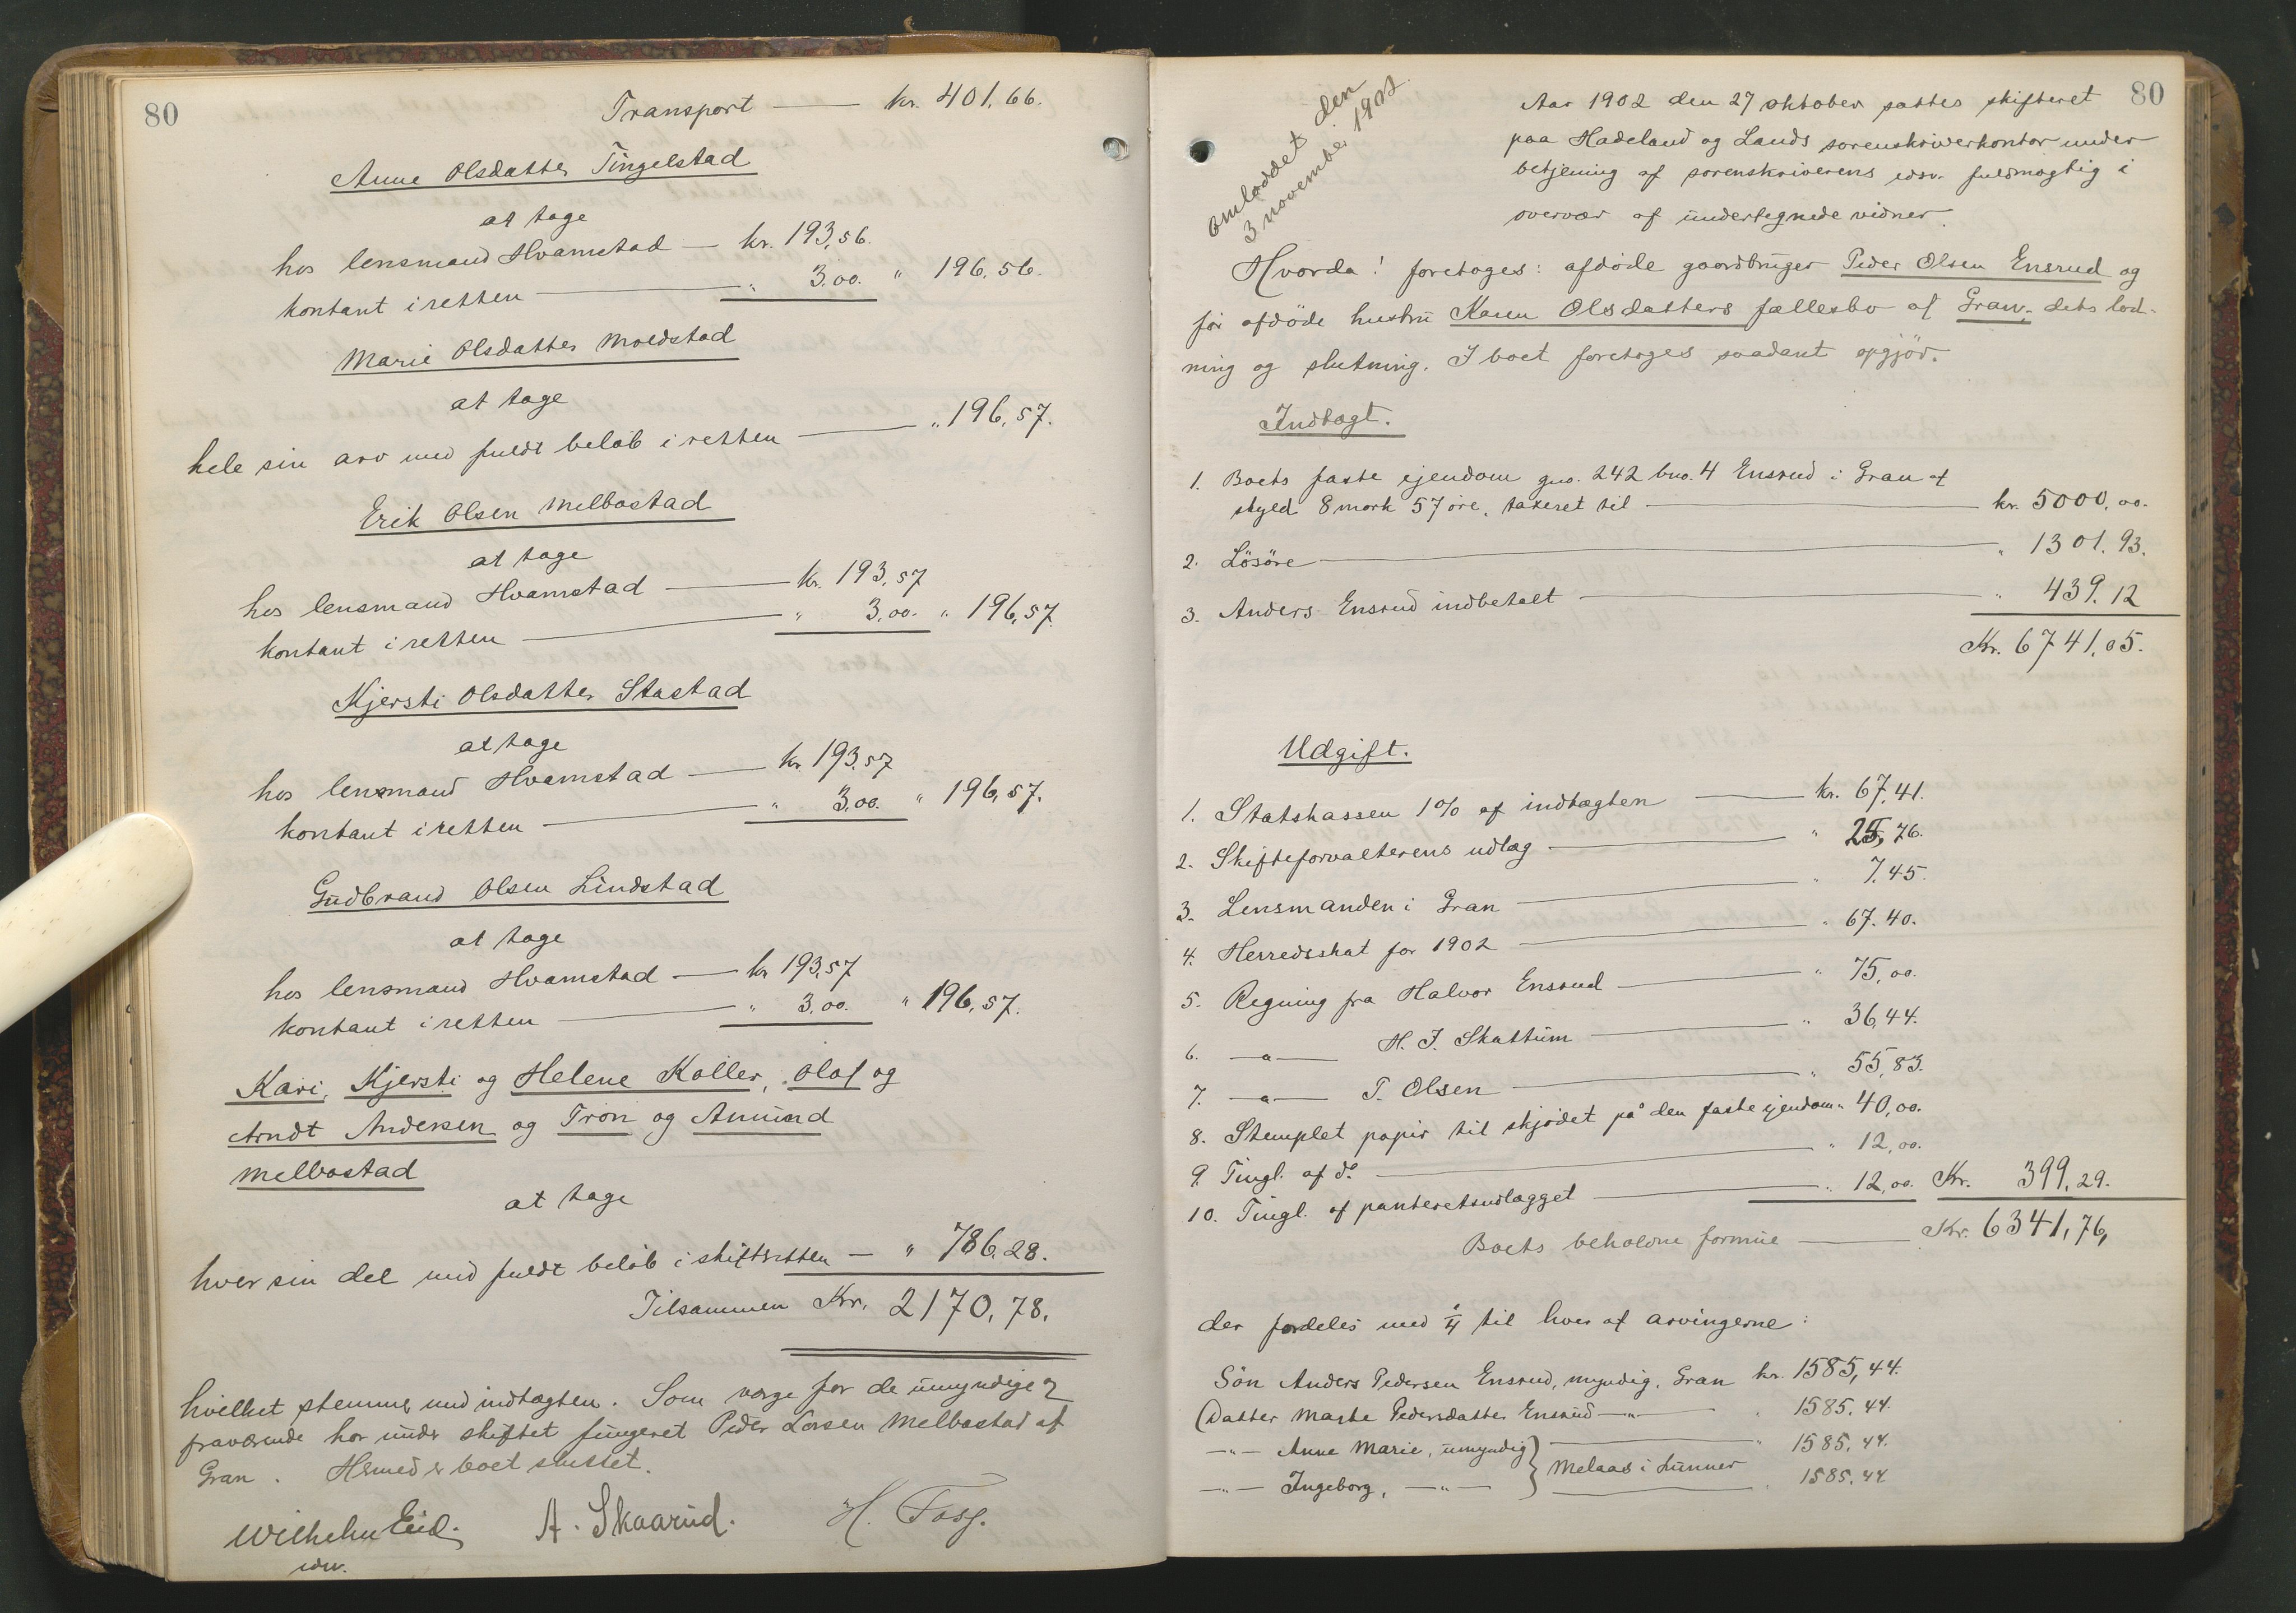 80
Transport — kr. 401.66.
Anne Olsdatter Tingelstad
at tage
hos lensmand Hvamstad — kr. 193,56.
kontant i retten — „ 3.00. „ 196,56.
Marie Olsdatter Moldstad
at tage
hele sin arv med fuldt beløb i retten — „ 196,57.
Erik Olsen Melbostad
at tage
hos lensmand Hvamstad — kr. 193,57
kontant i retten — „ 3,00. „ 196,57.
Kjersti Olsdatter Stastad
at tage
hos lensmand Hvamstad — kr 193,57
kontant i retten — „ 3,00. „ 196,57.
Gudbrand Olsen Lindstad
at tage
hos lensmand Hvamstad — kr 193,57
kontant i retten — „ 3,00. „ 196,57.
Kari, Kjersti og Helene Koller, Olaf og
Arndt Andersen og Tron og Amund
Melbostad
at tage
hver sin del med fuldt beløb i skifteretten — „ 786,28.
Tilsammen Kr. 2170,78.
hvilket stemmer med indtægten. Som verge for de umyndige &
fraværende har under skiftet fungeret Peder Larsen Melbostad af
Gran. Hermed er boet sluttet.
Wilhelm Eid. A. Skaarud. H. Foss.
edsv.
80
Omloddet den
3 november 1902
Aar 1902 den 27 oktober sattes skifteret
paa Hadeland og Lands sorenskriverkontor under
betjening af sorenskriverens edsv. fuldmægtig i
overvær af undertegnede vidner.
Hvorda! foretoges: afdøde gaardbruger Peder Olsen Ensrud og
før afdøde hustru Karen Olsdatters fællesbo af Gran, dets lod-
ning og slutning. I boet foretoges saadant opgjør.
Indtægt.
1. Boets faste ejendom gno. 242 bno. 4 Ensrud i Gran af
skyld 8 mark 57 øre, taxeret til — kr. 5000,00.
2. Løsøre — „ 1301.93.
3. Anders Ensrud indbetalt — „ 439.12
Kr. 6741,05.
Udgift.
1. Statskassen 1% af indtægten — kr. 67,41.
2. Skifteforvalterens udlæg — „ 25,76.
3. Lensmanden i Gran — „ 7.45.
4. Herredsskat for 1902 — „ 67.40.
5. Regning fra Halvor Ensrud — „ 75,00.
6. —a— H. J. Skattum — „ 36,44.
7. —a— T. Olsen — „ 55,83.
8. Stemplet papir til skjødet på den faste ejendom „ 40,00.
9. Tingl. af do. — „ 12,00.
10. Tingl. af panteretsudlægget — „ 12,00. Kr. 399,29.
Boets beholdne formue — Kr. 6341,76,
der fordeles med 1/4 til hver af arvingerne:
Søn Anders Pedersen Ensrud, myndig, Gran kr. 1585,44.
Datter Marthe Pedersdatter Ensrud —„— „ 1585,44.
—„— Anne Marie, umyndig } Melaas i Lunner „ 1585,44.
—„— Ingeborg, —„— „ 1585,44